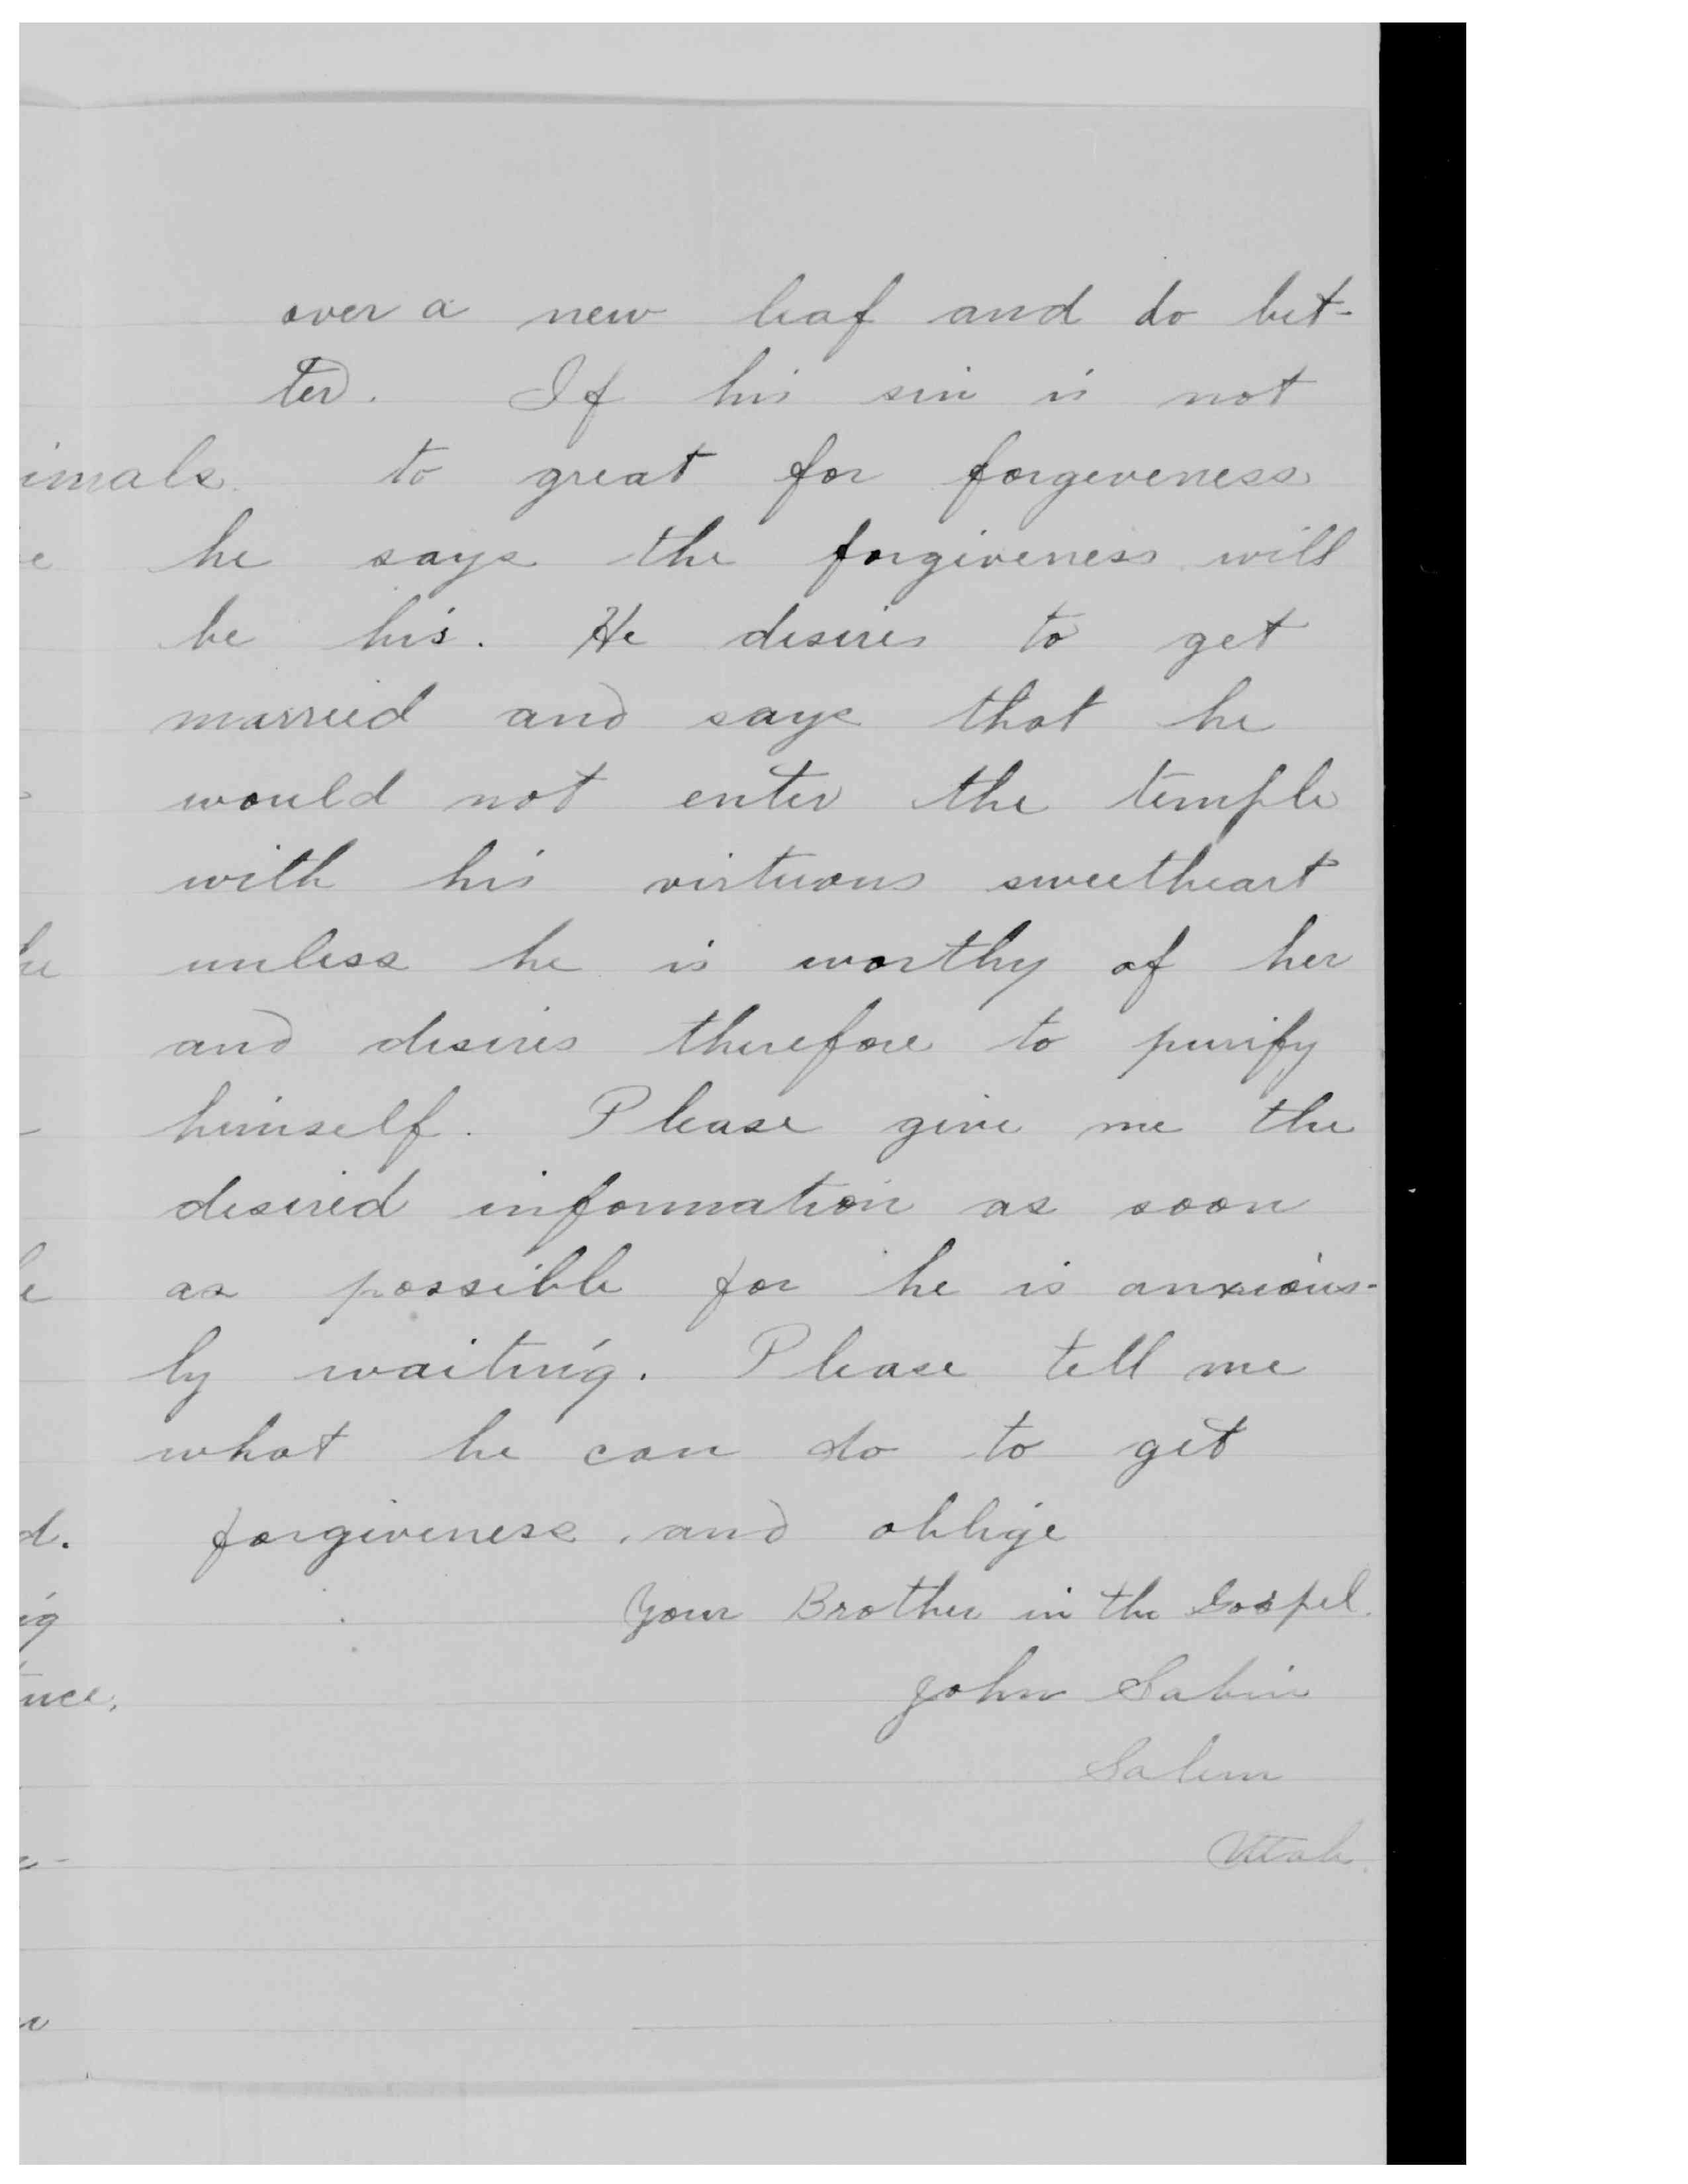 over a new leaf and do bet-
ter. If his sin is not
imals to great for forgeveness
he says the forgiveness will
be his. He desires to get
married and says that he
would not enter the temple
with his virtuous sweetheart
unless he is worthy of her
and desires therefore to purify
himself. Please give me the
desired information as soon
as possible for he is anxious-
ly waiting. Please tell me
what he can do to get
d. forgiveness, and oblige
Your Brother in the Gospel.
John Sabin
Salem
Utah.